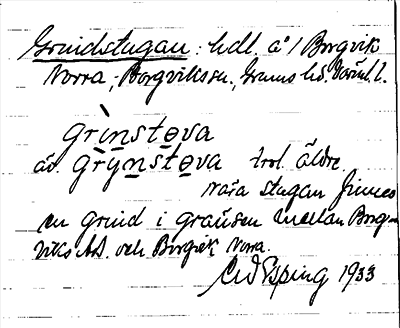 Grindstugan: hdl. å 1 Borgvik
Norra, Borgviks sn, Grums hd. Värml. l.
grìnstəva
äv. grỳnstəva trol. äldre.
Nära stugan finnes
en grind i gränsen mellan Borg-
viks A.B. och Borgvik Norra.
Esping 1933